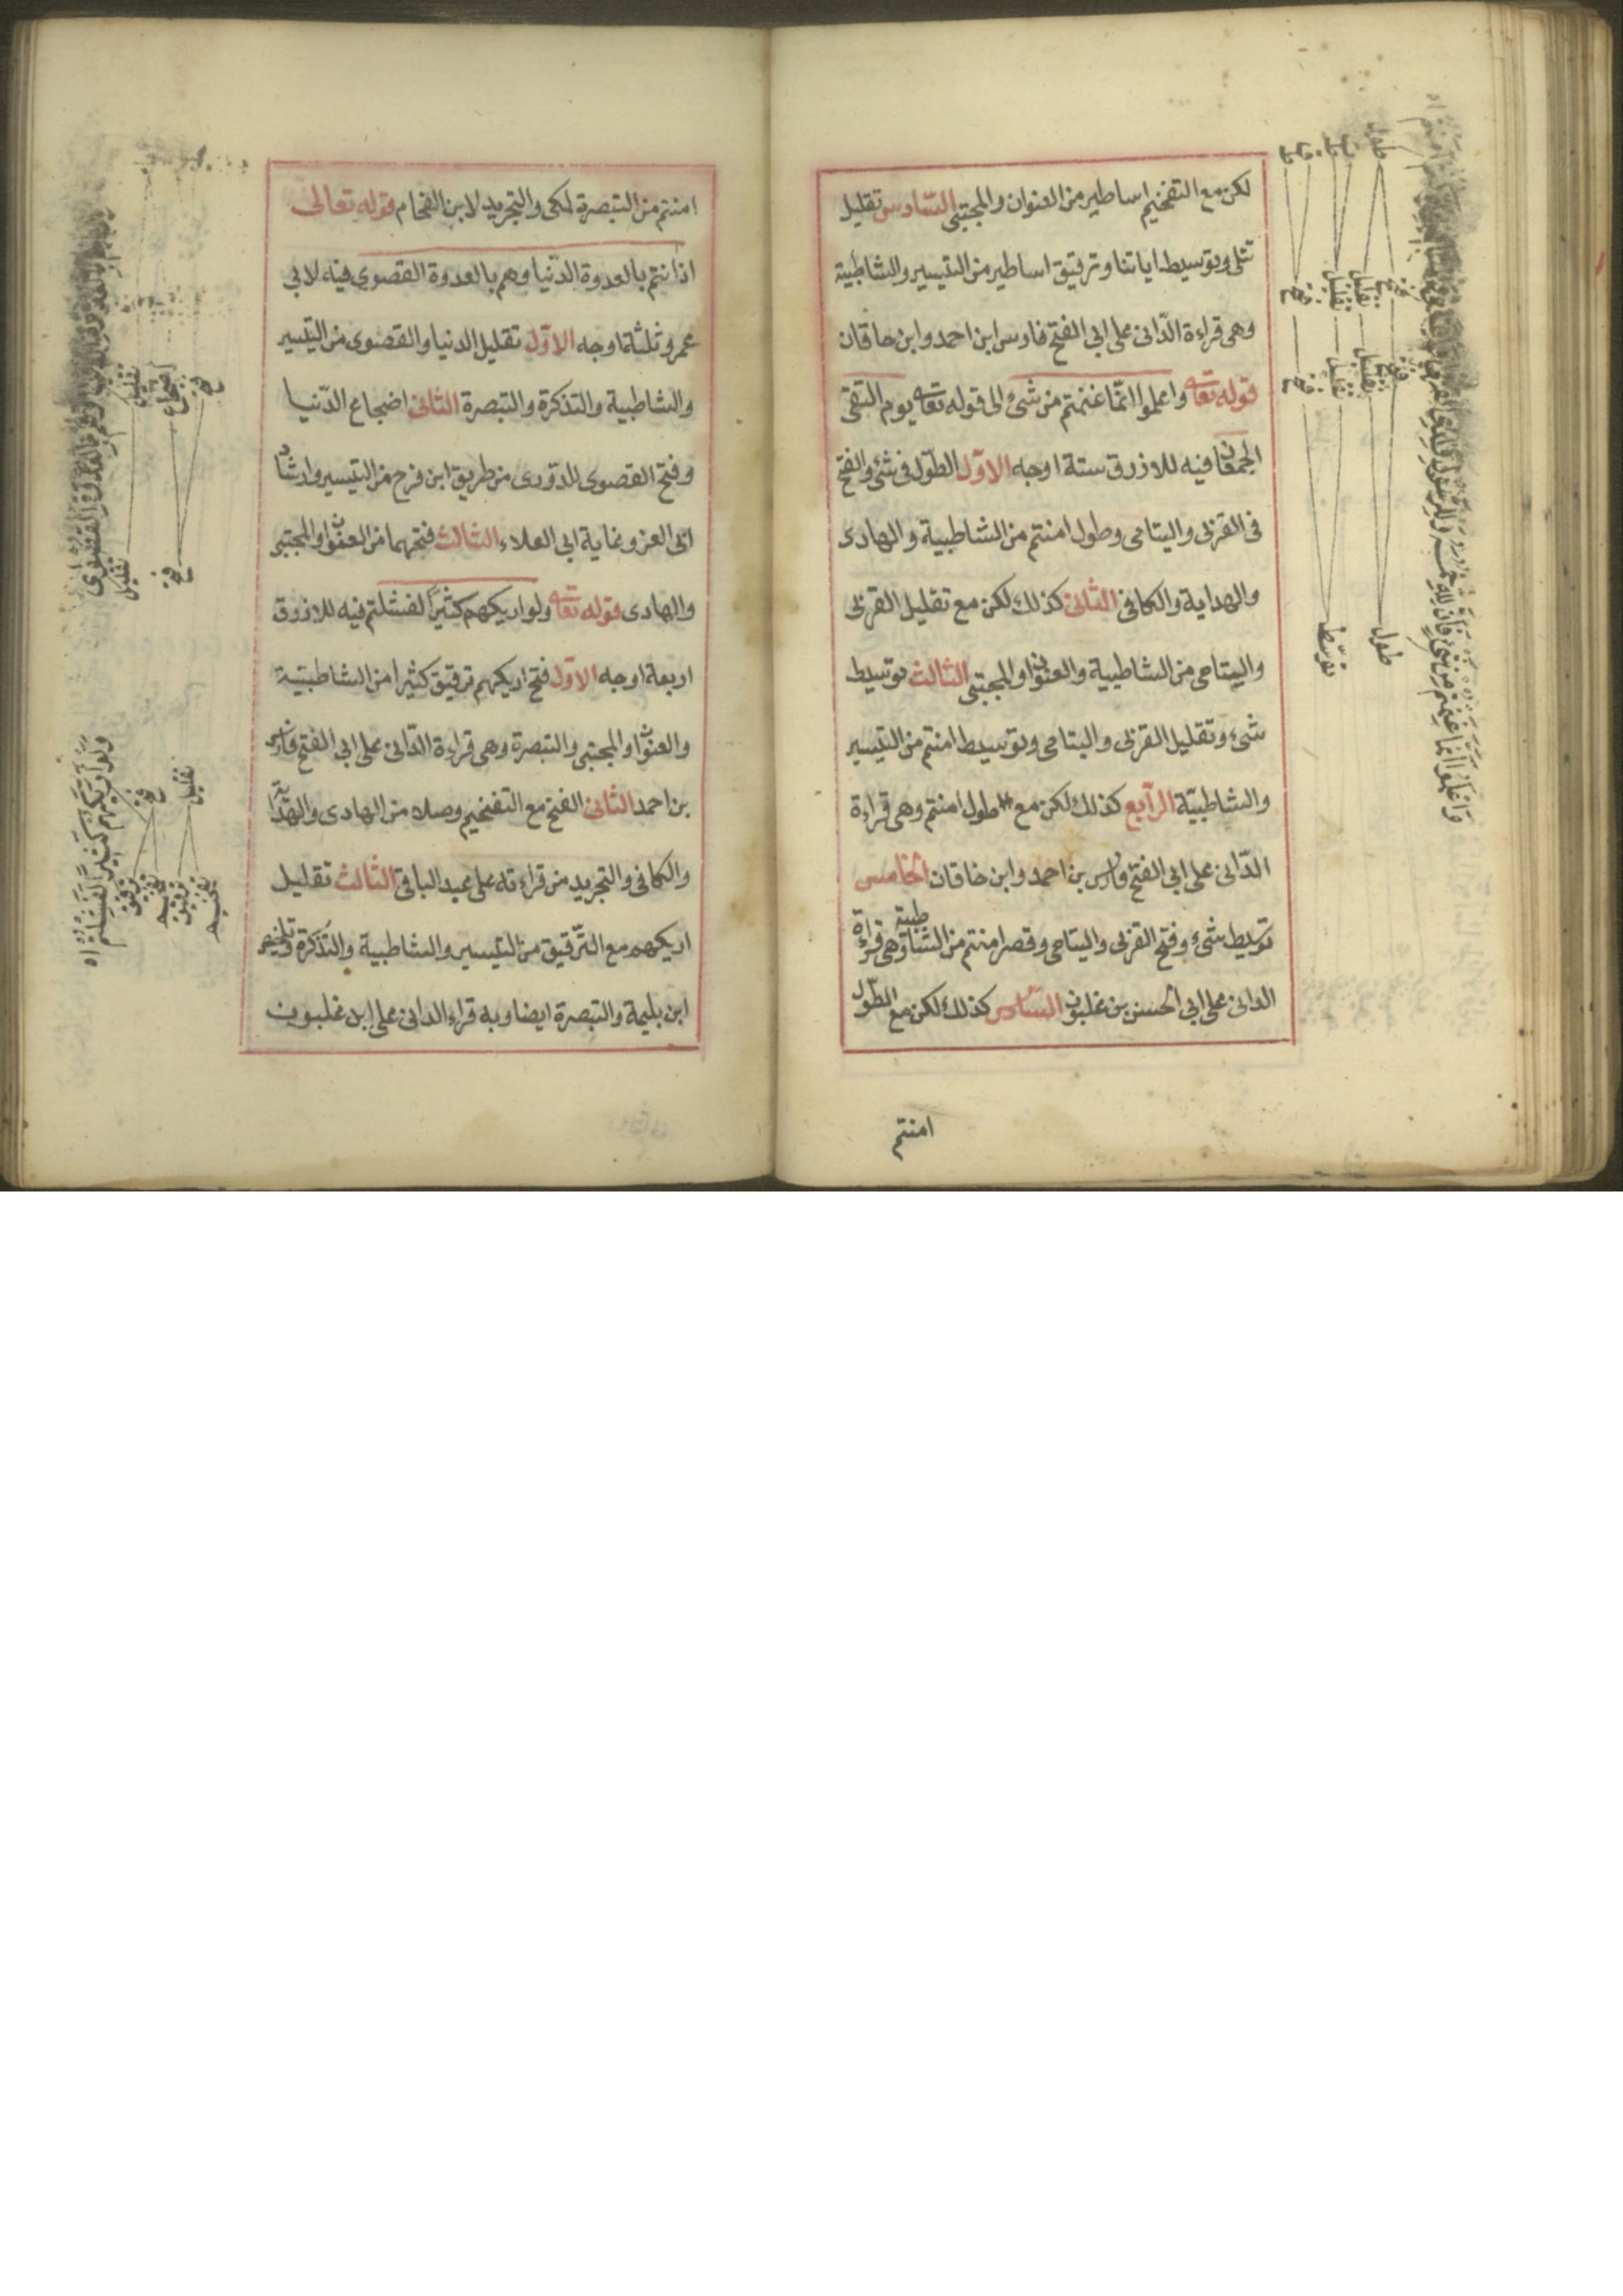 لكن مع التفخيم اساطير من العنوان والمجتبى السّادس تقليل
تتلى وتوسيط اياتنا وترقيق اساطير من التيسير والشاطبية
وهى قراءة الدّانى على ابى الفتح فارس ابن احمد وابن خاقان
قوله تعا واعلموا انّما غنمتم من شئ الى قوله تعا يوم التقى
الجمعان فيه للازرق ستة اوجه الاوّل الطّول فى شئ والفتح
فى القربى واليتامى وطول امنتم من الشاطبية والهادى
والهداية والكافى الثّانى كذلك لكن مع تقليل القربى
واليتامى من الشاطبية والعنوان والمجتبى الثالث توسيط
شئ وتقليل القربى واليتامى وتوسيط امنتم من التيسير
والشاطبيّة الرّابع كذلك لكن مع طول امنتم وهى قراءة
الدّانى على ابى الفتح فارس بن احمد وابن خاقان الخامس
توسيط شئ وفتح القربى واليتامى وقصر امنتم من الشاطبية وهى قراءة
الدانى على ابى الحسن بن غلبون السّادس كذلك لكن مع الطّول
امنتم
طول
توسّط
امنتم من التبصرة لمكى والتجريد لابن الفحام قوله تعالى
اذ انتم بالعدوة الدّنيا وهم بالعدوة القصوى فيه لابى
عمرو ثلثة اوجه الاوّل تقليل الدنيا والقصوى من التيسير
والشاطبية والتذكرة والتبصرة الثّانى اضجاع الدّنيا
وفتح القصوى للدّورى من طريق ابن فرح من التيسير وارشاد
ابى العز وغاية ابى العلاء الثالث فتحهما من العنوان والمجتبى
والهادى قوله تعا ولو اريكهم كثيرًا لفشلتم فيه للازرق
اربعة اوجه الاوّل فتح اريكهم ترقيق كثيرا من الشاطبيّة
والعنوان والمجتبى والتبصرة وهى قراءة الدّانى على ابى الفتح فارس
بن احمد الثانى الفتح مع التفخيم وصلا من الهادى والهداية
والكافى والتجريد من قراءته على عبد الباقى الثّالث تقليل
اريكهم مع التّرقيق من التيسير والشاطبية والتذكرة وتلخيص
ابن بليمة والتبصرة ايضا وبه قراء الدانى على ابن غلبون
تقليل
اضجاع
فتح
تقليل
فتح
وَلَوْ اَرَيكَهُمْ كَثِيرًا لَفَشِلْتُمْ اه
فتح
تقليل
ترقيق
تفخيم
ترقيق
تفخيم